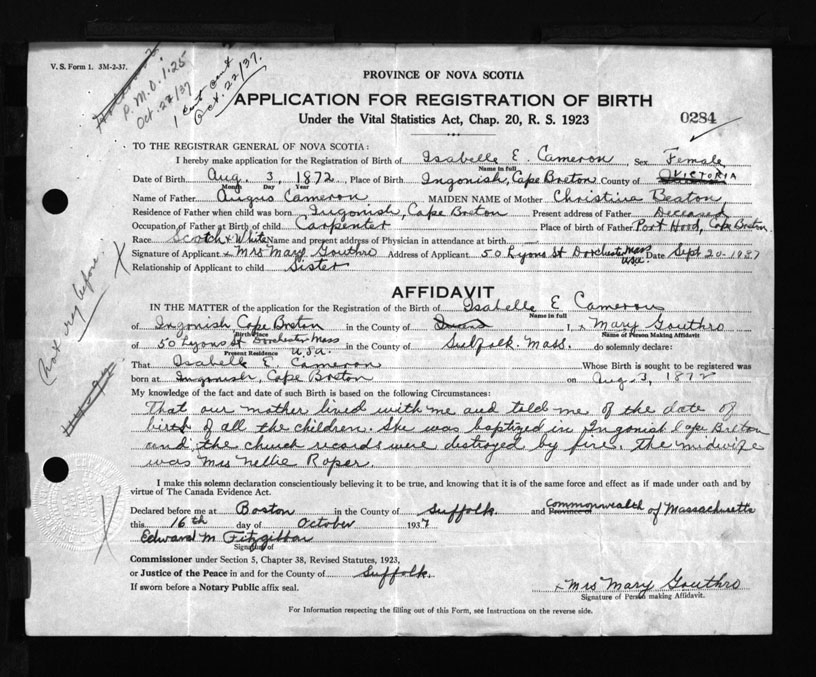 V. S. Form 1. 3M-2-37.
P. M. O. 1.25
Oct. 22/37
1 Cert sent
Oct. 22/37.
PROVINCE OF NOVA SCOTIA
APPLICATION FOR REGISTRATION OF BIRTH
Under the Vital Statistics Act, Chap. 20, R. S. 1923
0284
TO THE REGISTRAR GENERAL OF NOVA SCOTIA:
I hereby make application for the Registration of Birth of Isabelle E. Cameron, Sex Female
Name in full
Date of Birth Aug. 3, 1872, Place of Birth Ingonish, Cape Breton County of VICTORIA
Month Day Year
Name of Father Angus Cameron MAIDEN NAME of Mother Christina Beaton
Residence of Father when child was born Ingonish, Cape Breton Present address of Father Deceased
Occupation of Father at Birth of child Carpenter Place of birth of Father Port Hood, Cape Breton
Race Scotch & White Name and present address of Physician in attendance at birth
Signature of Applicant x Mrs Mary Gouthro Address of Applicant 50 Lyons St Dorchester Mass USA Date Sept 20-1937
Relationship of Applicant to child Sister
AFFIDAVIT
IN THE MATTER of the application for the Registration of the Birth of Isabelle E Cameron
Name in full
of Ingonish Cape Breton in the County of I, x Mary Gouthro
Birth place Name of Person Making Affidavit
of 50 Lyons St Dorchester Mass U.S.A. in the County of Suffolk Mass. do solemnly declare:
Present Residence
That Isabelle E. Cameron Whose Birth is sought to be registered was
born at Ingonish, Cape Breton on Aug. 3, 1872
My knowledge of the fact and date of such Birth is based on the following Circumstances:
That our mother lived with me and told me of the date of
birth of all the children. She was baptized in Ingonish Cape Breton
and the church records were destroyed by fire. The midwife
was Mrs Nellie Roper.
I make this solemn declaration conscientiously believing it to be true, and knowing that it is of the same force and effect as if made under oath and by
virtue of The Canada Evidence Act.
Declared before me at Boston in the County of Suffolk and Province of Commonwealth of Massachusetts
this 16th day of October 1937
Edward M Fitzgibbon
Signature of
Commissioner under Section 5, Chapter 38, Revised Statutes, 1923,
or Justice of the Peace in and for the County of Suffolk.
If sworn before a Notary Public affix seal.
x Mrs Mary Gouthro
Signature of Person making Affidavit.
For Information respecting the filling out of this Form, see Instructions on the reverse side.
not reg before.